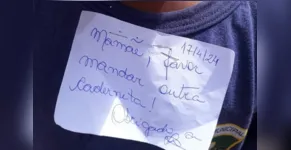 17/4/24
Mamãe! favor
mandar outra
caderneta!
Obrigada